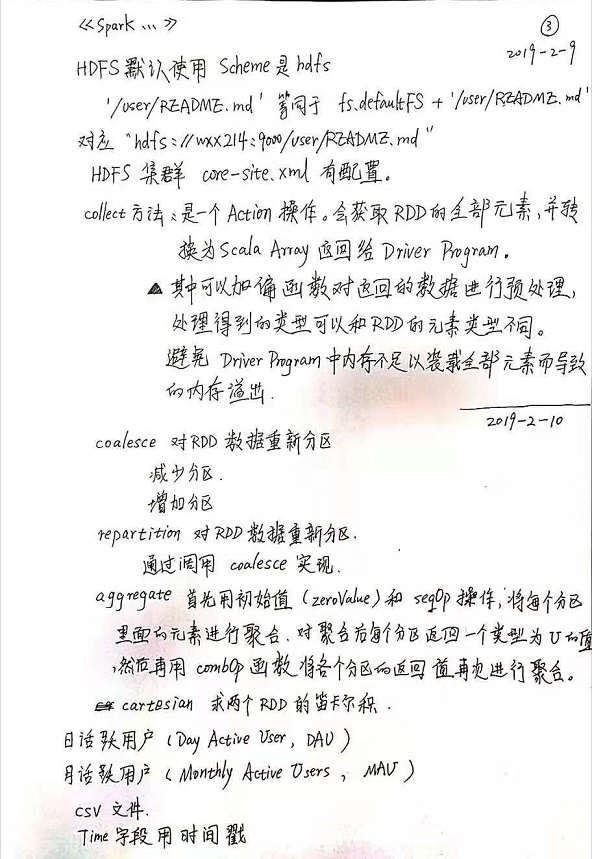 《Spark...》 ③
2019-2-9
HDFS默认使用 Scheme是hdfs
'/user/README.md' 等同于 fs.defaultFS + '/user/README.md'
对应 "hdfs://wxx214:9000/user/README.md"
HDFS 集群 core-site.xml 有配置。
collect方法:是一个Action操作。会获取RDD的全部元素,并转
换为Scala Array返回给Driver Program.
▲其中可以加偏函数对返回的数据进行预处理,
处理得到的类型可以和RDD的元素类型不同。
避免 Driver Program中内存不足以装载全部元素而导致
的内存溢出.
2019-2-10
coalesce 对RDD数据重新分区
减少分区.
增加分区
repartition 对RDD数据重新分区.
通过调用 coalesce 实现.
aggregate 首先用初始值(zeroValue)和 seqOp操作,将每个分区
里面的元素进行聚合.对聚合后每个分区返回一个类型为U的值
,然后再用 combOp函数将各个分区的返回值再次进行聚合。
cartesian 求两个RDD的笛卡尔积.
日活跃用户(Day Active User, DAU)
月活跃用户(Monthly Active Users, MAU)
csv 文件.
Time字段用时间戳